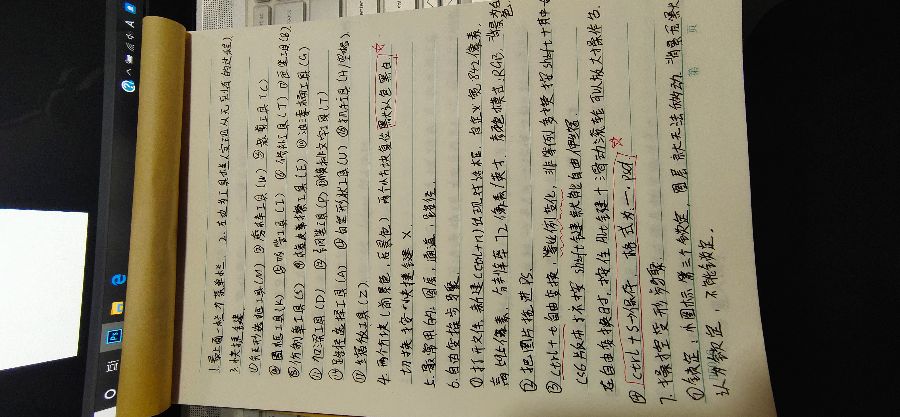 1.最上面一栏为菜单栏 2.左边为工具栏(实现从无到有的过程)
3.快捷键
①矩形选框工具(M) ②魔棒工具(W) ③裁剪工具(C)
④图框工具(K) ⑤吸管工具(I) ⑥修补工具(T) ⑦画笔工具(B)
⑧仿制章工具(S) ⑨橡皮擦工具(E) ⑩油漆桶工具(G)
⑪加深工具(D) ⑫钢笔工具(P) ⑬横排文字工具(T)
⑭路径选择工具(A) ⑮自定形状工具(U) ⑯抓手工具(H/空格)
⑰缩放工具(Z)
4.两个方块(前景色,后景色) 两个小方块复位默认色黑白
切换按一下快捷键X
5.最常用的,图层,通道,路径
6.自由变换步骤
①打开文件,新建(ctrl+n)出现对话框,自定义宽842像素,
高 像素,分辨率72像素/英寸,颜色模式:RGB,背景为白色
②把图片拖进PS
③ctrl+t自由变换,等比例变化,非等例多按按shift
CS6版本以下按shift键就能自由伸缩
在自由变换时,按住Alt键+滑动滚轮可以放大操作台
④ctrl+s→保存 格式为—.psd
7.操控变形步骤
①锁定:小图标第三个锁定,图层就无法挪动
认为锁定,不能锁定.
第 页
Ps